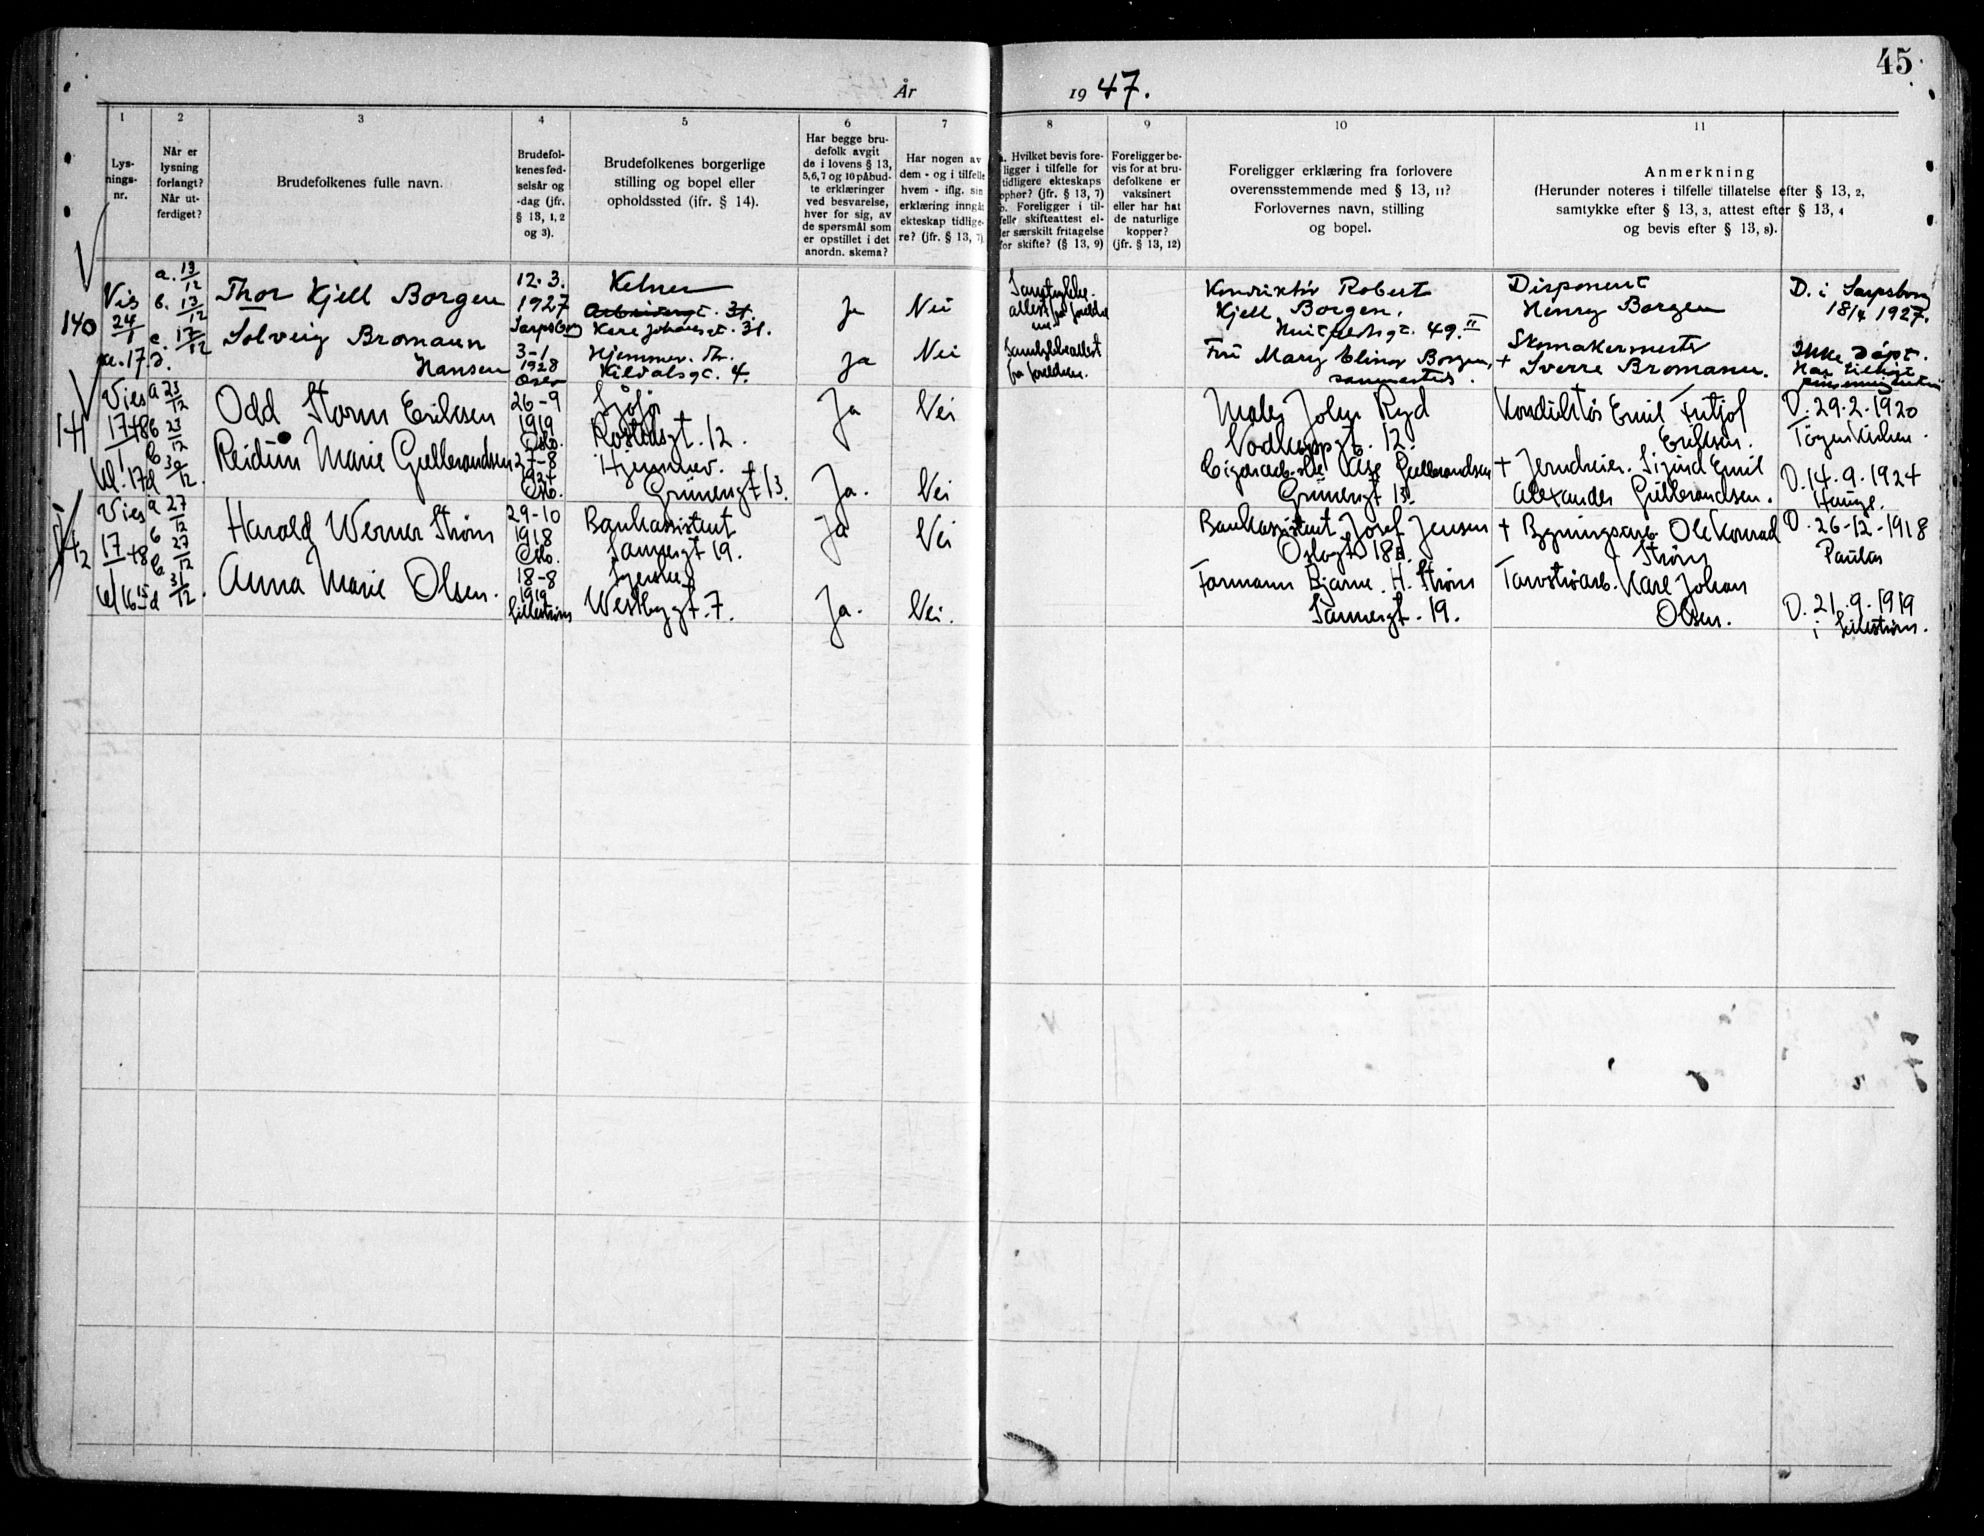 45
År 1947.
1
2
3
4
5
6
7
8
9
10
11
Lys-
nings-
nr.
Når er
lysning
forlangt?
Når ut-
ferdiget?
Brudefolkenes fulle navn.
Brudefol-
kenes fød-
selsår og
-dag (jfr.
§ 13, 1, 2
og 3).
Brudefolkenes borgerlige
stilling og bopel eller
opholdssted (ifr. § 14).
Har begge bru-
defolk avgit
de i lovens § 13,
5,6,7 og 10 påbud-
te erklæringer
ved besvarelse,
hver for sig, av
de spørsmål som
er opstillet i det
anordn. skema?
Har nogen av
dem - og i tilfelle
hvem - iflg. sin
erklæring inngåt
ekteskap tidlige-
re? (jfr. § 13, 7)
a. Hvilket bevis fore-
ligger i tilfelle for
tidligere ekteskaps
ophør? (jfr. § 13, 7)
b. Foreligger i til-
felle skifteattest el-
ler særskilt fritagelse
for skifte? (§ 13, 9)
Foreligger be-
vis for at bru-
defolkene er
vaksinert
eller har hat
de naturlige
kopper?
(jfr. § 13, 12)
Foreligger erklæring fra forlovere
overensstemmende med § 13, 11?
Forlovernes navn, stilling
og bopel.
Anmerkning
(Herunder noteres i tilfelle tillatelse efter § 13, 2,
samtykke efter § 13, 3, attest efter § 13, 4
og bevis efter § 13, 8).
140
Vis
24/1
kl. 17.
a. 13/12
b. 13/12
c. 17/12
d.
Thor Kjell Borgen
Solveig Bromann
Hansen
12.3.
1927
Sarpsborg
3-1
1928
Oslo
Kelner
Karl Johansgt. 31.
Hjemmev.
4.
Ja
Nei
Ja
Nei
Samtykke-
attest fra foreldre
Samtykkeattest
fra foreldrene.
Konduktør Robert
Kjell Borgen,
Huitfeldtsgt. 49. II
Fru Mary Elinor Borgen,
sammesteds.
Disponent
Henry Borgen
Skomakermester
+ Sverre Bromann.
D. i Sarpsborg
18/4 1927.
Ikke døpt.
141
Vies
17/1 48
kl. 17
a 23/12
b 23/12
c 30/12.
d
Odd Storm Eriksen
Reidun Marie Gulbrandsen
26-9
1919
Oslo.
27-8
1924
Oslo.
Sjåfør
12.
Hjemmev.
Grünergt 13.
Ja
Nei
Ja.
Nei
Maler John Ryd
12.
Gulbrandsen
Grünergt 13.
Konduktør Emil Fritjof
Eriksen.
+ Jerndreier. Sigurd Emil
Alexander Gulbrandsen.
D. 29-2-1920
D. 14-9-1924
Hauge.
142
Vies
17/1 48
kl 16 15
a 27/12
b 27/12
c 31/12.
d
Harald Werner Strøm
Anna Marie Olsen.
29-10
1918
Oslo.
18-8
1919
Lillestrøm
Bankassistent
Sannergt 19.
Syerske
Westbygt. 7.
Ja
Nei
Ja.
Nei.
Bankassistent Josef Jensen
Oslogt 18a.
Formann Bjarne. H. Strøm
Sannergt. 19.
+ Bygningsarb Ole Konrad
Strøm
Karl Johan
Olsen.
D. 26-12-1918
Paulus
D. 21.9.1919
i Lillestrøm.